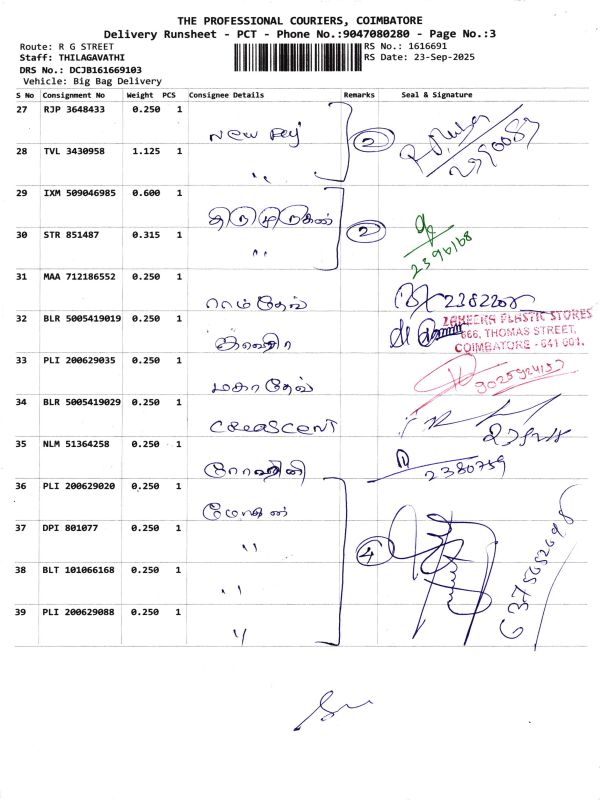 THE PROFESSIONAL COURIERS, COIMBATORE
Delivery Runsheet - PCT - Phone No.:9047080280 - Page No.:3
Route: R G STREET
RS No.: 1616691
Staff: THILAGAVATHI
RS Date: 23-Sep-2025
DRS No.: DCJB161669103
Vehicle: Big Bag Delivery
S No Consignment No Weight PCS Consignee Details Remarks Seal & Signature
27 RJP 3648433 0.250 1
New
2
28 TVL 3430958 1.125 1
,,
29 IXM 509046985 0.600 1
திருமுருகன்
2
30 STR 851487 0.315 1
,,
2396168
31 MAA 712186552 0.250 1
ராம்தேவ்
32 BLR 5005419019 0.250 1
ZAHEERA PLASTIC STORES
666, THOMAS STREET,
COIMBATORE - 641 001.
33 PLI 200629035 0.250 1
மகாதேவ்
34 BLR 5005419029 0.250 1
CREASCENT
35 NLM 51364258 0.250 1
2380759
36 PLI 200629020 0.250 1
மோகன்
37 DPI 801077 0.250 1
,,
4
38 BLT 101066168 0.250 1
,,
39 PLI 200629088 0.250 1
,,